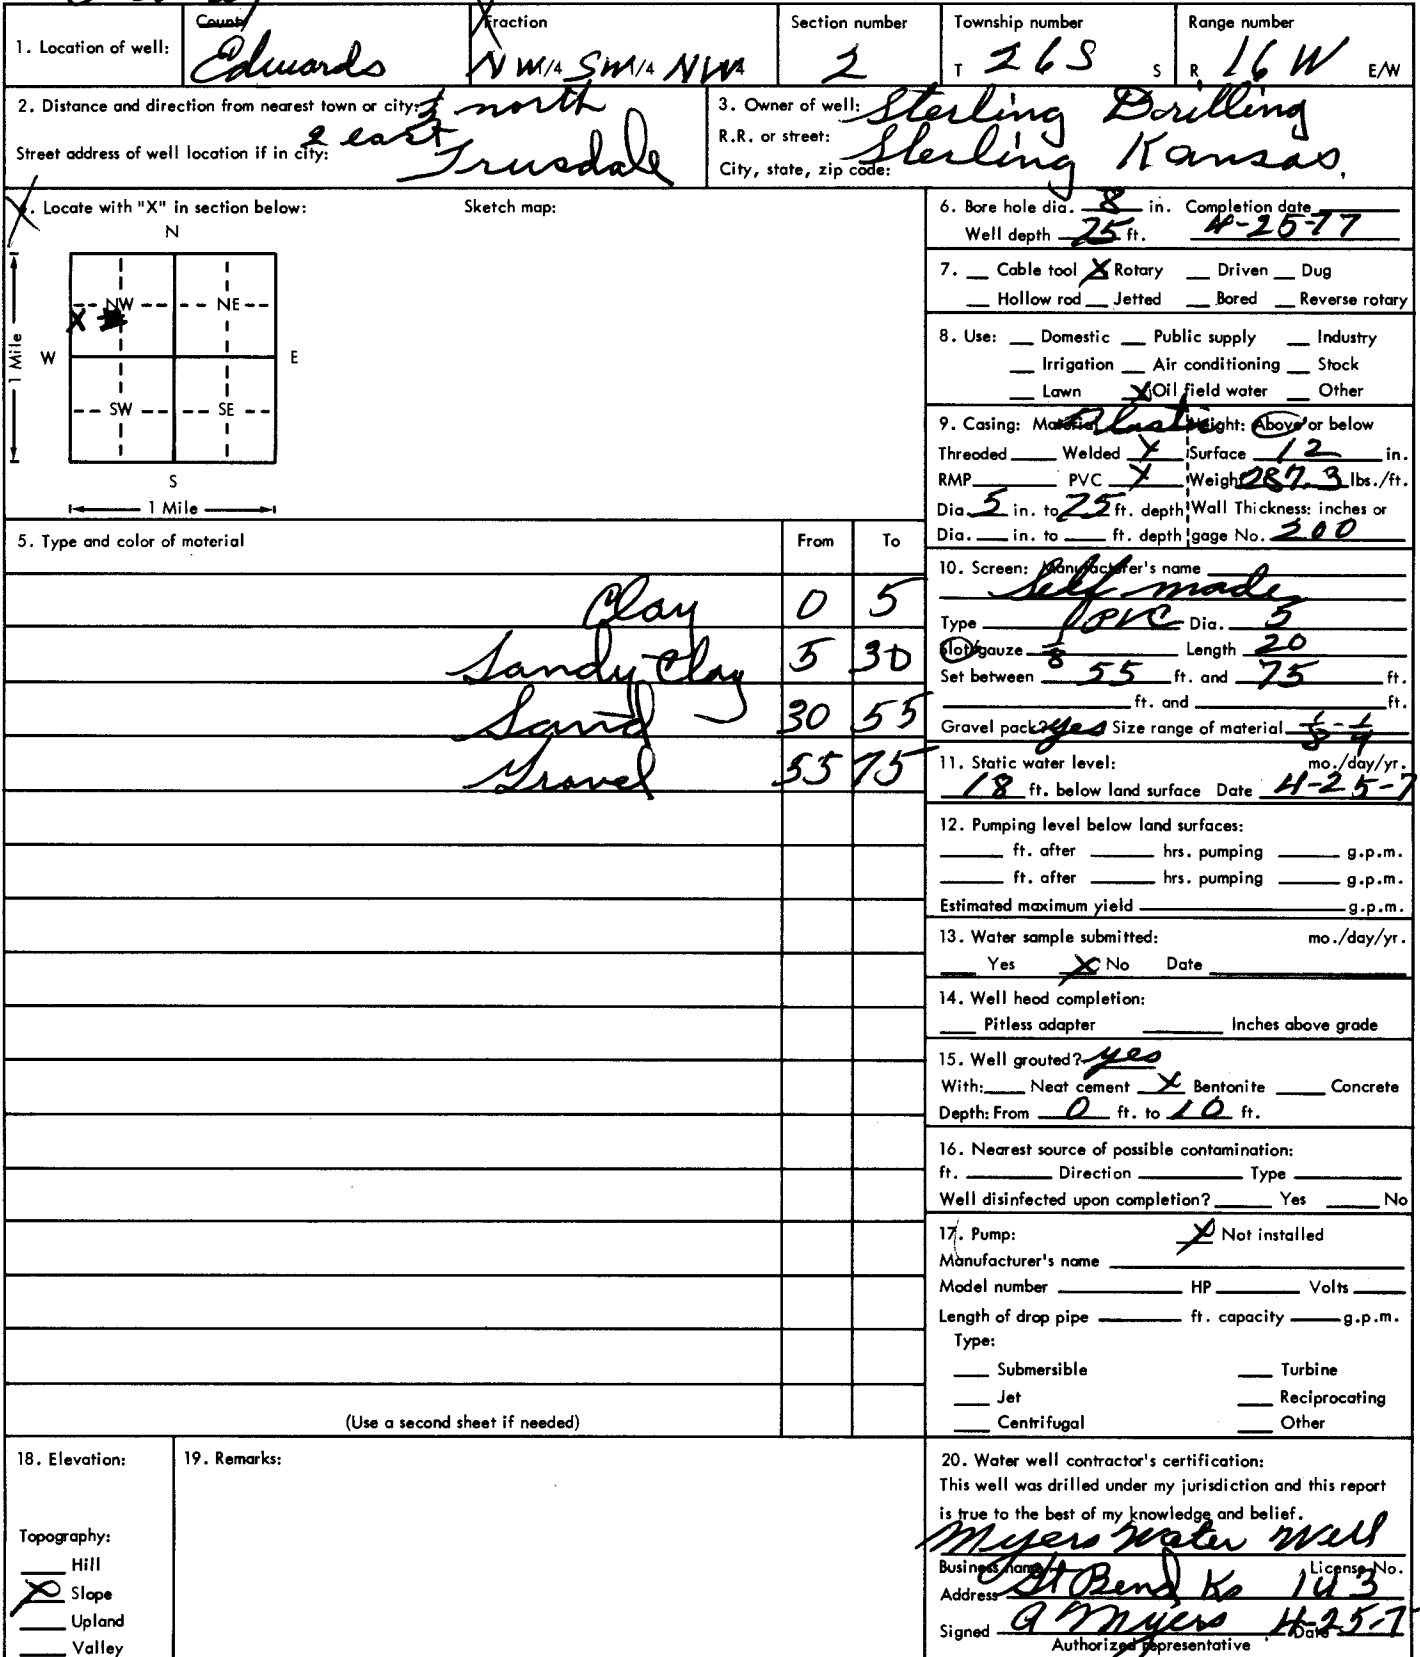 1. Location of well:
County
Edwards
Fraction
NW 1/4 SW 1/4 NW 1/4
Section number
2
Township number
T 26S S
Range number
R 16 W E/W
2. Distance and direction from nearest town or city: north
2 east
Street address of well location if in city: Trusdale
3. Owner of well: Sterling Drilling
R.R. or street:
City, state, zip code: Sterling Kansas.
Locate with "X" in section below:
Sketch map:
N
NW NE
X
W E
1 Mile
SW SE
S
1 Mile
5. Type and color of material From To
Clay 0 5
Sandy Clay 5 30
Sand 30 55
Gravel 55 75
(Use a second sheet if needed)
6. Bore hole dia. 8 in. Completion date
Well depth 75 ft. 4-25-77
7. Cable tool X Rotary Driven Dug
Hollow rod Jetted Bored Reverse rotary
8. Use: Domestic Public supply Industry
Irrigation Air conditioning Stock
Lawn X Oil field water Other
9. Casing: Material Plastic Height: Above or below
Threaded Welded X Surface 12 in.
RMP PVC X Weight 287.3 lbs./ft.
Dia. 5 in. to 75 ft. depth Wall Thickness: inches or
Dia. in. to ft. depth gage No. 200
10. Screen: Manufacturer's name
Self made
Type PVC Dia. 5
Slot/gauze 1/8 Length 20
Set between 55 ft. and 75 ft.
ft. and ft.
Gravel pack? yes Size range of material 1/8 - 1/4
11. Static water level: mo./day/yr.
18 ft. below land surface Date 4-25-7
12. Pumping level below land surfaces:
ft. after hrs. pumping g.p.m.
ft. after hrs. pumping g.p.m.
Estimated maximum yield g.p.m.
13. Water sample submitted: mo./day/yr.
Yes X No Date
14. Well head completion:
Pitless adapter Inches above grade
15. Well grouted? yes
With: Neat cement X Bentonite Concrete
Depth: From 0 ft. to 10 ft.
16. Nearest source of possible contamination:
ft. Direction Type
Well disinfected upon completion? Yes No
17. Pump: X Not installed
Manufacturer's name
Model number HP Volts
Length of drop pipe ft. capacity g.p.m.
Type:
Submersible Turbine
Jet Reciprocating
Centrifugal Other
18. Elevation:
Topography:
Hill
X Slope
Upland
Valley
19. Remarks:
20. Water well contractor's certification:
This well was drilled under my jurisdiction and this report
is true to the best of my knowledge and belief.
Myers Water Well
Business name License No.
Address Gt Bend Ks 143
Signed A Myers Date 4-25-7
Authorized representative